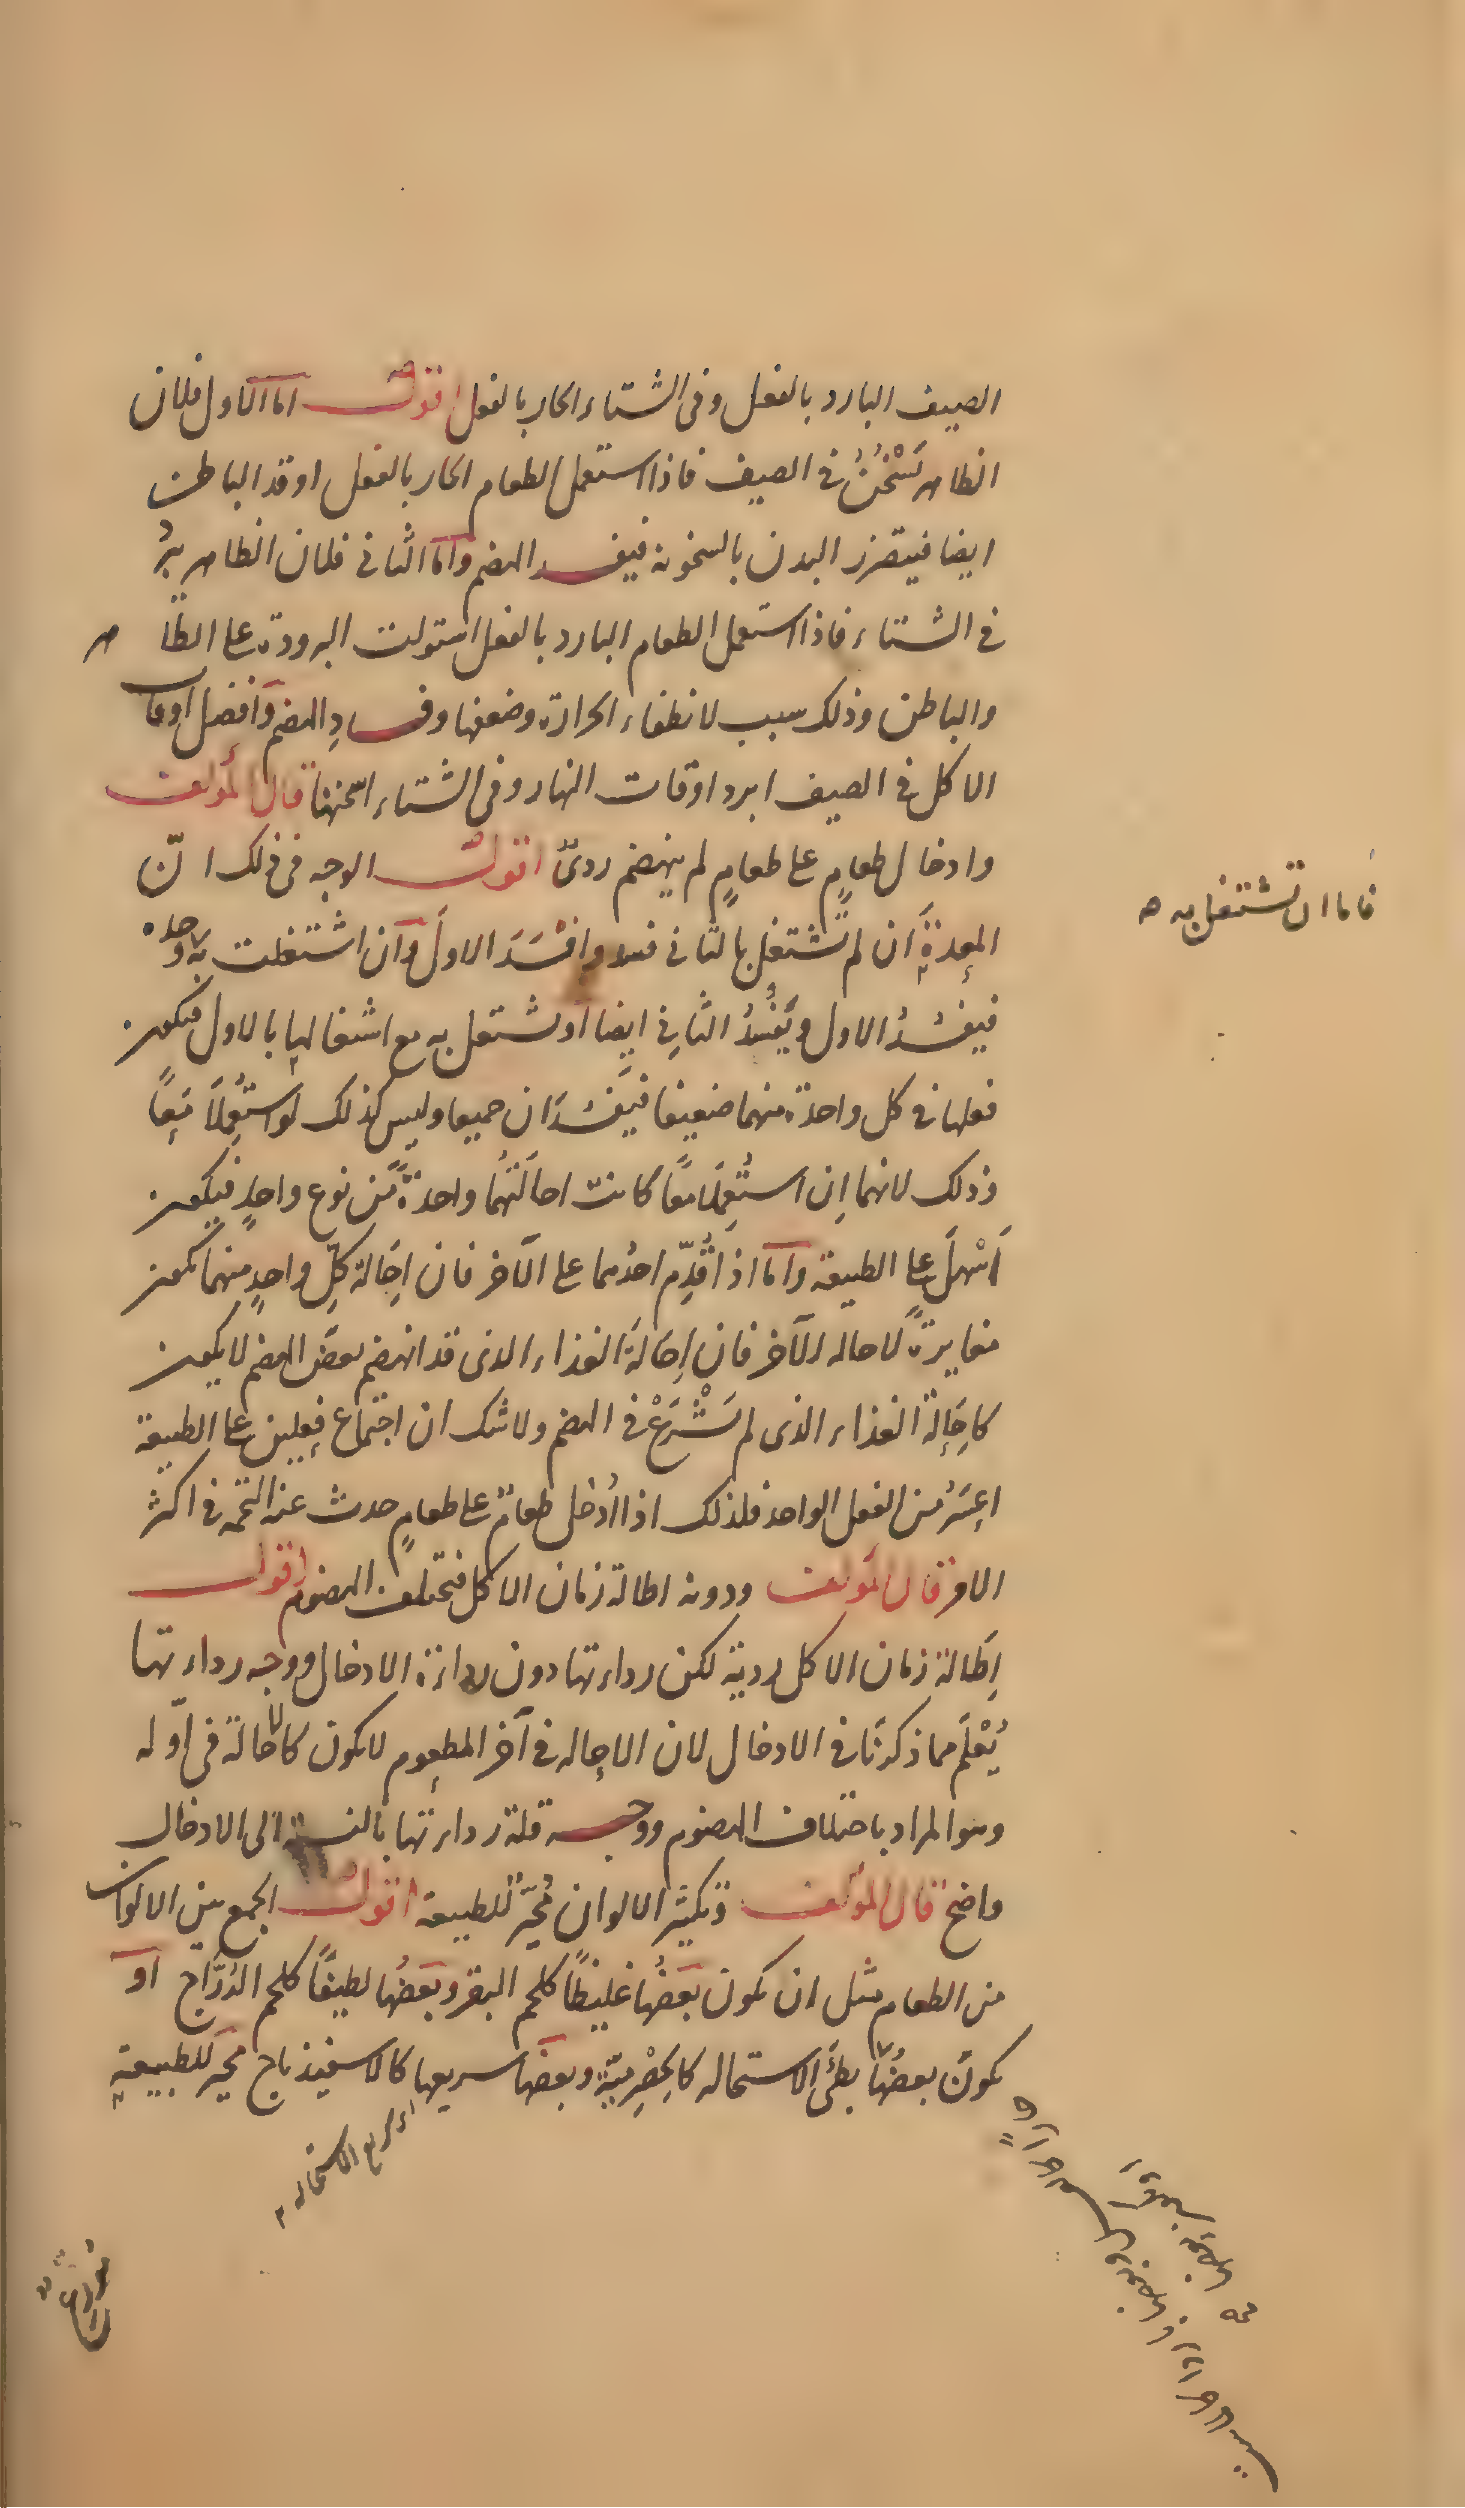 الصيف البارد بالفعل وفى الشتاء الحار بالفعل اقول اما الاول فلان
الظاهر يَسْخُنُ فى الصيف فاذا استعمل الطعام الحار بالفعل اوقد الباطن
ايضا فيتضرر البدن بالسخونة فيفسد الهضم واما الثانى فلان الظاهر يبرُد
فى الشتاء فاذا استعمل الطعام البارد بالفعل استولت البرودة على الظاهر
والباطن وذلك سبب لانطفاء الحرارة وضعفها وفسادِ الهضم وافضل اوقات
الاكل فى الصيف ابرد اوقات النهار وفى الشتاء اسخنها قال المؤلف
وادخال طعامٍ على طعامٍ لم ينهضم ردىّ اقول الوجه فى ذلك انّ
المعدةَ ان لم تشتغل بالثانى فسد وافْسَدَ الاولَ وان اشتغلت به وحده
فيفسُدُ الاول ويَفْسُدُ الثانِى ايضا او تشتغل به مع اشتغالها بالاول فيكون
فعلها فى كل واحدة منهما ضعيفا فيَفسُدَان جميعا وليس كذلك لو استُعْمِلَا مَعًا
وذلك لانهما اِن استُعْمِلَا معًا كانت احالَتُهُما واحدةً مَن نوع واحدٍ فيكون
اَسْهلَ على الطبيعة واما اذا قُدِّم احدُهما على الآخر فان اِحَالة كلِّ واحدٍ منهما تكون
مغايرةً لاحالة الآخر فان اِحَالةَ الغذاء الذى قد انهضم بعضَ الهضم لا يكون
كاِحَالةِ الغذاء الذى لم يَشْرَعْ فى الهضم ولا شك ان اجتماع فِعلين على الطبيعة
اعسَرُ من الفعل الواحد فلذلك اذا اُدْخل طعامٌ على طعامٍ حدث عنه التخمة فى اكثر
الامر قال المؤلف ودونه اطالة زمان الاكل فتختلف الهضوم اقول
اِطَالة زمان الاكل ردية لكن رداءتها دون رداءة الادخال ووجه رداءتها
يُعْلَم مما ذكرنَا فى الادخال لان الاحالة فى آخر المطعوم لا تكون كالاحالة فى اوّله
وهو المراد باختلاف الهضوم ووجه قلة رداءتها بالنسبة الى الادخال
واضح قال المؤلف وتكثير الالوان مُحَيِّرٌ للطبيعة اقول الجمع بين الالوان
من الطعام مثل ان يكون بَعضُها غليظًا كلحم البقر وبَعضُها لطيفًا كلحم الدُرَّاج او
يكونَ بعضُها بطئَ الاستحالة كالحِصْرِمِيّة وبعضها سريعها كالاسفيذباج محير للطبيعةِ
فاما ان تشتغل به
اى سريع الاستحالة